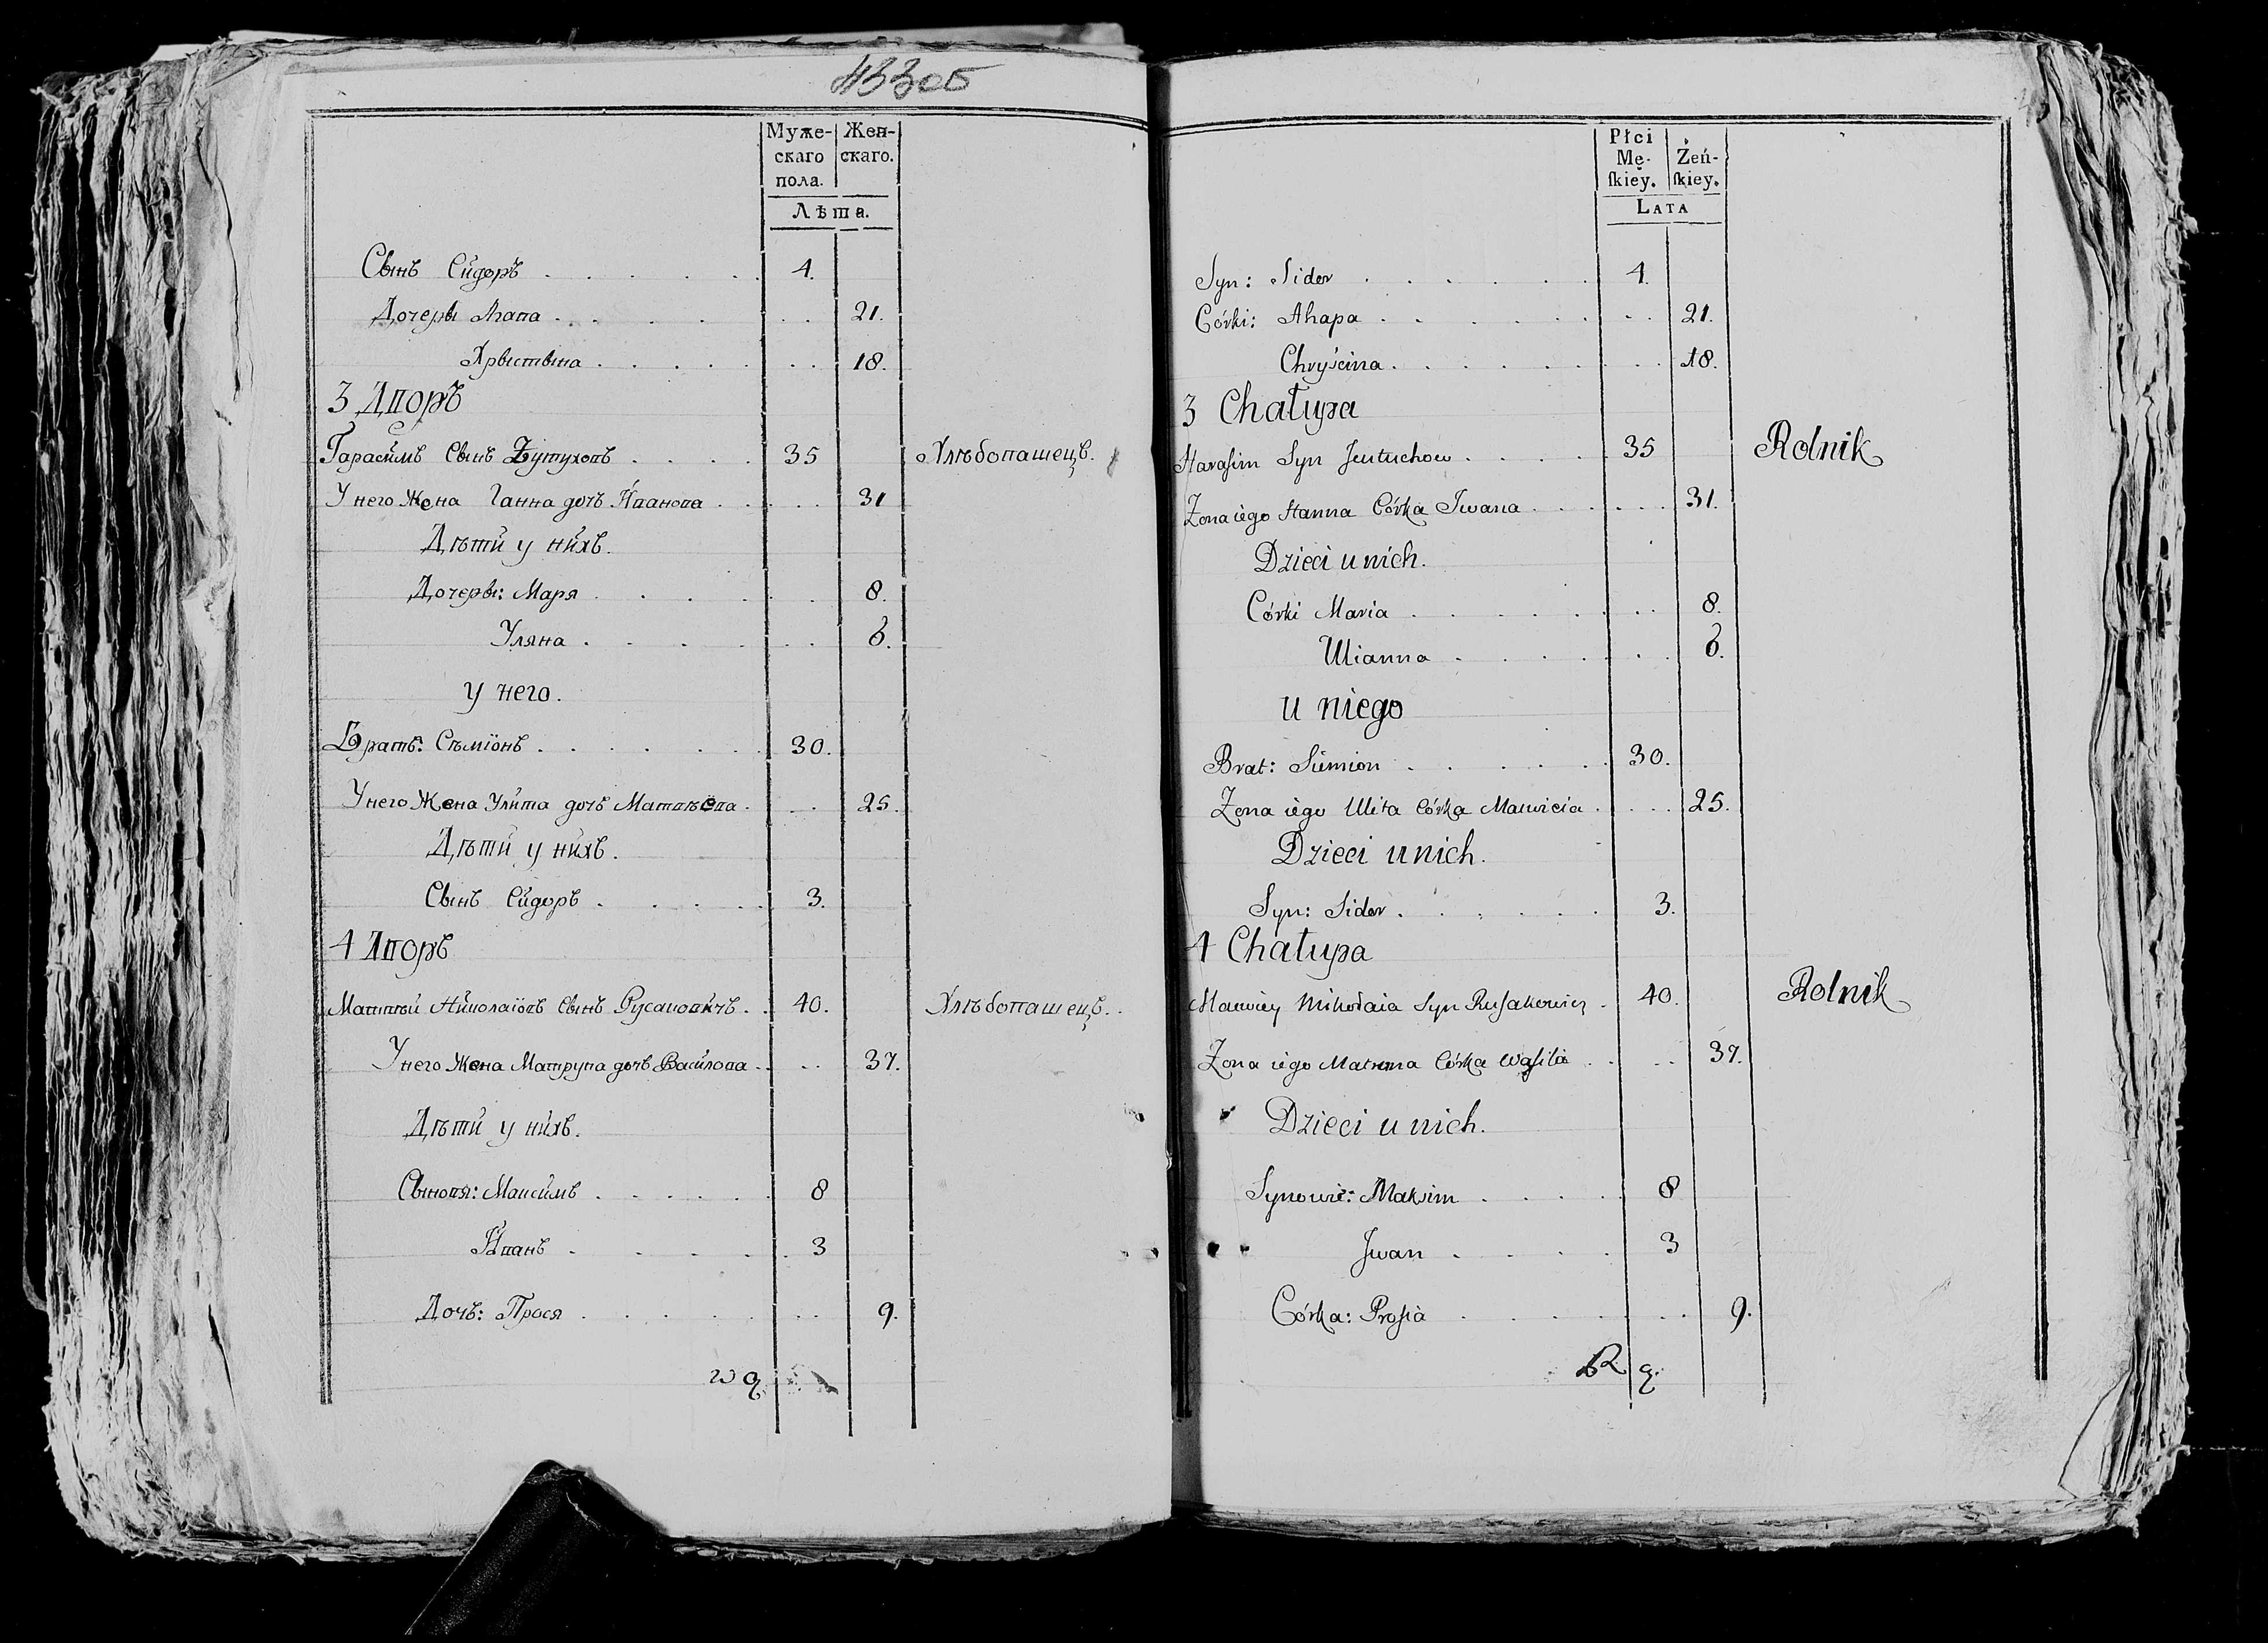 433об
Муже- Жен-
скаго скаго.
пола.
Лѣта.
Сынъ Сидоръ . . . . . . 4.
Дочеры Агапа . . . . . . 21.
Хрыстына . . . . . . . 18.
3 Дворъ
Гарасимъ Сынъ Евтуховъ . . . . 35 Хлѣбопашецъ.
У него Жена Ганна дочъ Иванова . . . . 31
Дѣти у нихъ.
Дочеры: Маря . . . . . . 8.
Уляна . . . . . . 6.
у него.
Братъ: Сѣмïонъ . . . . . . 30.
У него Жена Улита дочъ Матвѣева . . . 25.
Дѣти у нихъ.
Сынъ Сидоръ . . . . . 3.
4 Дворъ
Матвѣй Николаïовъ Сынъ Русаковичъ . . 40. Хлѣбопашецъ. .
У него Жена Матруна дочъ Василова . . . . 37.
Дѣти у нихъ.
Сыновя: Максимъ . . . . . . 8
Иванъ . . . . . . 3
Дочъ: Прося . . . . . . . 9.
Płci
Mę- Żeń-
ſkiey. ſkiey.
LATA
Syn: Sidor . . . . . . 4.
Córki: Ahapa . . . . . . . . 21.
Chryścina . . . . . . . . 18.
3 Chałupa
Haraſim Syn Jeutuchow . . . . . 35 Rolnik
Zona iego Hanna Córka Jwana . . . . . . 31.
Dzieci u nich.
Córki Maria . . . . . . . 8.
Ulianna . . . . . . 6.
u niego
Brat: Siemion . . . . . . 30.
Zona iego Ulita Córka Mauwieia . . . . 25.
Dzieci u nich.
Syn: Sidor . . . . . . 3.
4 Chałupa
Matwiey Mikołaia Syn Ruſakowicz . 40. Rolnik
Zona iego Matruna Córka Waſila . . . . 37.
Dzieci u nich.
Synowie: Maksim . . . . 8
Jwan . . . . 3
Córka: Proſia . . . . . . 9.